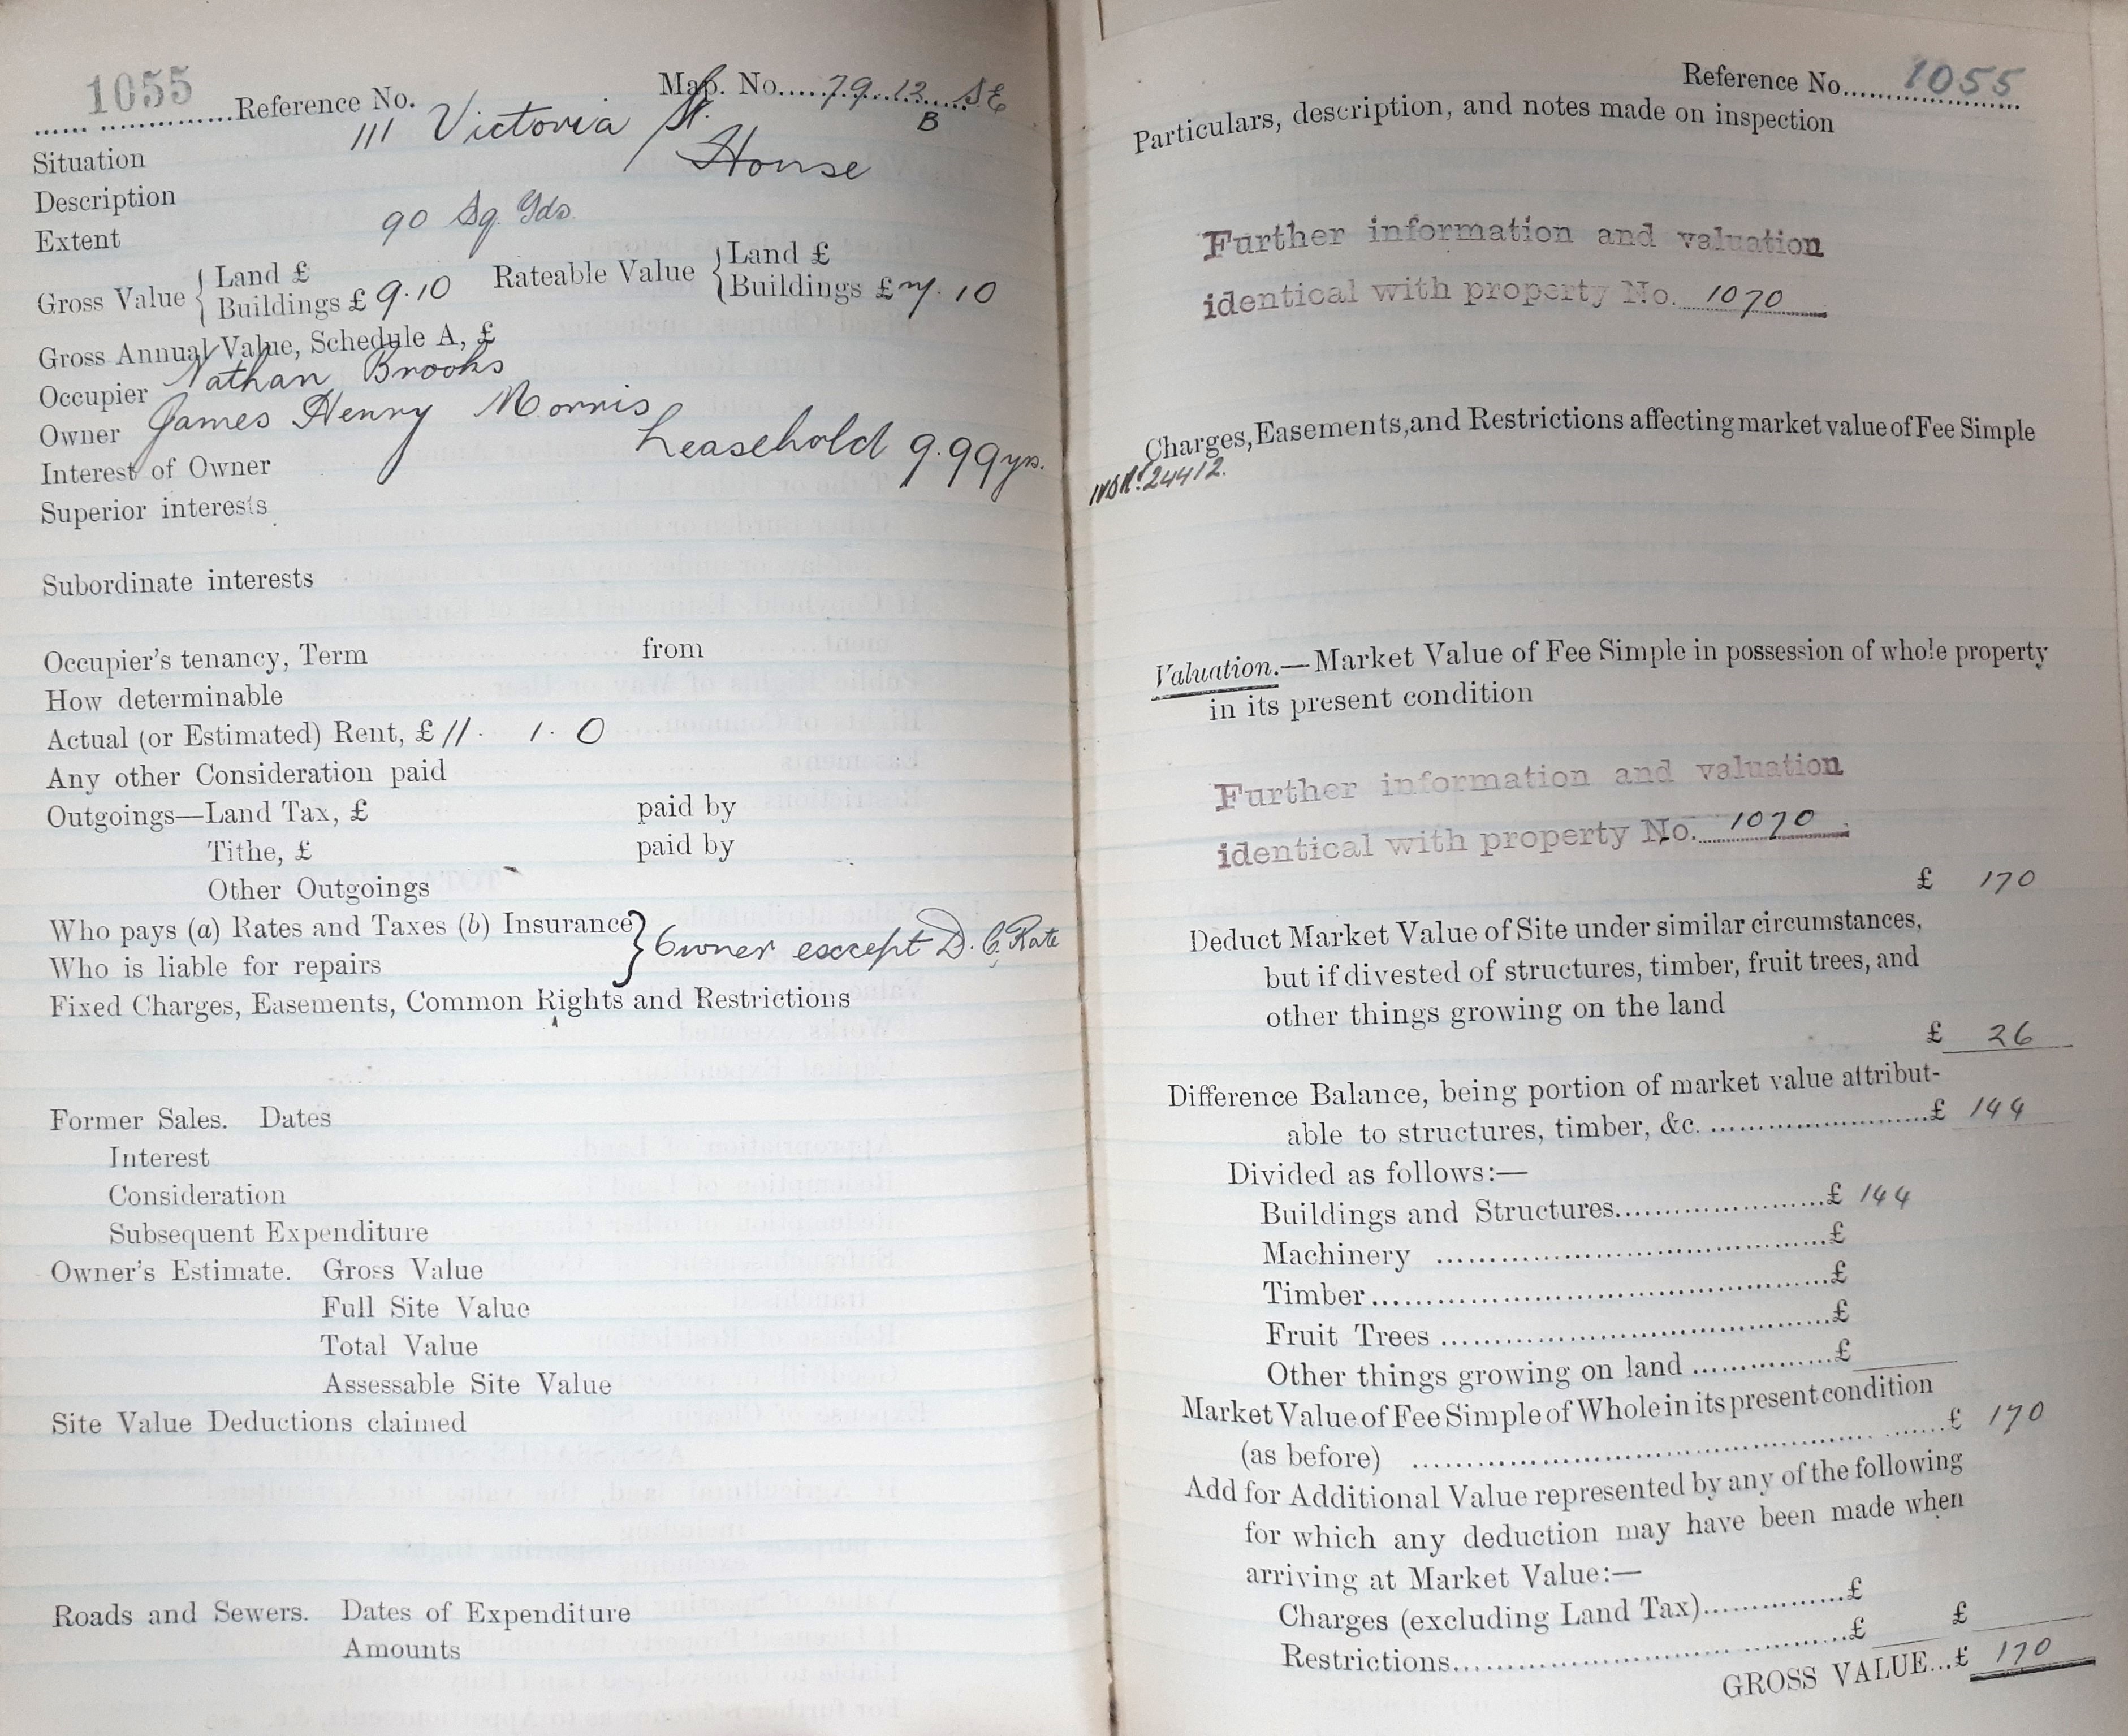 1055 Reference No. Map. No. 79.12 SE
B
Situation 111 Victoria St.
Description House
Extent 90 Sq. Yds.
Gross Value { Land £
Buildings £ 9.10
Rateable Value { Land £
Buildings £ 7.10
Gross Annual Value, Schedule A, £
Occupier Nathan Brooks
Owner James Henry Morris
Interest of Owner Leasehold 9.99 yrs.
Superior interests
Subordinate interests
Occupier's tenancy, Term from
How determinable
Actual (or Estimated) Rent, £ 11. 1. 0
Any other Consideration paid
Outgoings—Land Tax, £ paid by
Tithe, £ paid by
Other Outgoings
Who pays (a) Rates and Taxes (b) Insurance
Who is liable for repairs } Owner except D. C. Rate
Fixed Charges, Easements, Common Rights and Restrictions
Former Sales. Dates
Interest
Consideration
Subsequent Expenditure
Owner's Estimate. Gross Value
Full Site Value
Total Value
Assessable Site Value
Site Value Deductions claimed
Roads and Sewers. Dates of Expenditure
Amounts
Reference No. 1055
Particulars, description, and notes made on inspection
Further information and valuation
identical with property No. 1070
Charges, Easements, and Restrictions affecting market value of Fee Simple
24412.
Valuation.—Market Value of Fee Simple in possession of whole property
in its present condition
Further information and valuation
identical with property No. 1070
£ 170
Deduct Market Value of Site under similar circumstances,
but if divested of structures, timber, fruit trees, and
other things growing on the land
£ 26
Difference Balance, being portion of market value attribut-
able to structures, timber, &c. £ 144
Divided as follows:—
Buildings and Structures £ 144
Machinery £
Timber £
Fruit Trees £
Other things growing on land £
Market Value of Fee Simple of Whole in its present condition
(as before) £ 170
Add for Additional Value represented by any of the following
for which any deduction may have been made when
arriving at Market Value:—
Charges (excluding Land Tax) £
Restrictions £ £
GROSS VALUE...£ 170